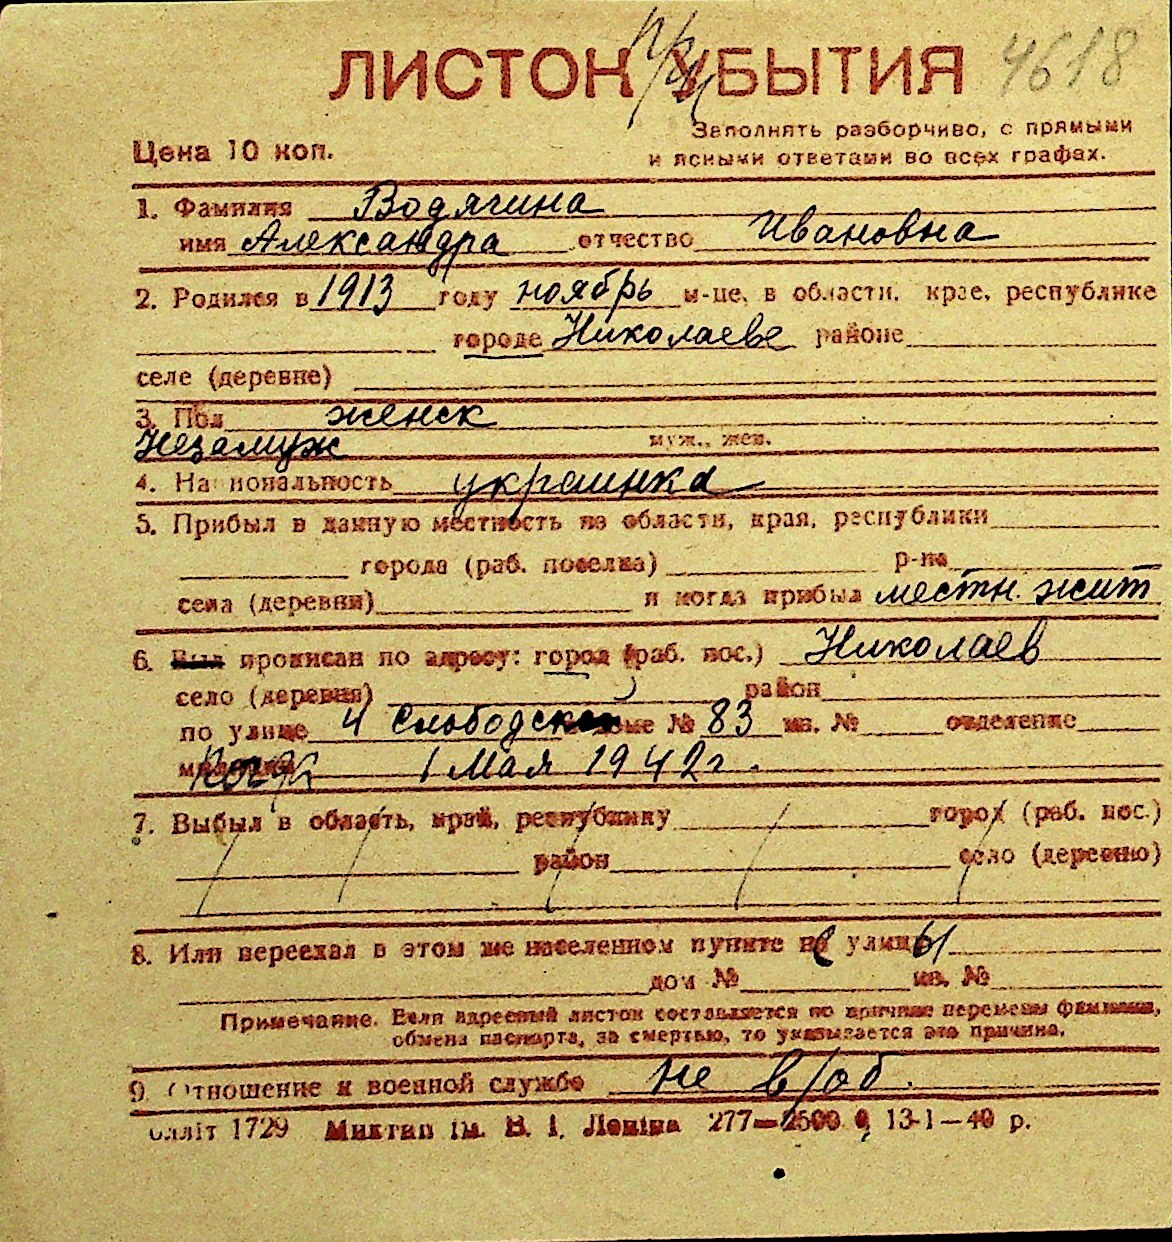 при
ЛИСТОК УБЫТИЯ 4618
Цена 10 коп.
Заполнять разборчиво, с прямыми
и ясными ответами во всех графах.
1. Фамилия Водягина
имя Александра отчество Ивановна
2. Родился в 1913 году ноябрь м-це, в области, крае, республике
городе Николаеве районе
селе (деревне)
3. Пол женск
Незамуж муж., жен.
4. Национальность украинка
5. Прибыл в данную местность из области, края, республики
города (раб. поселка) р-на
села (деревни) и когда прибыл местн. жит
6. Был прописан по адресу: город (раб. пос.) Николаев
село (деревня) район
по улице 4 Слободской доме № 83 кв. № отделение
милиции 1 Мая 1942 г.
7. Выбыл в область, край, республику город (раб. пос.)
район село (деревню)
8. Или переехал в этом же населенном пункте с улицы
дом № кв. №
Примечание. Если адресный листок составляется по причине перемены фамилии,
обмена паспорта, за смертью, то указывается эта причина.
9 Отношение к военной службе не в/об.
блліт 1729 Миктип ім. В. І. Леніна 277—2500 13-1—40 р.